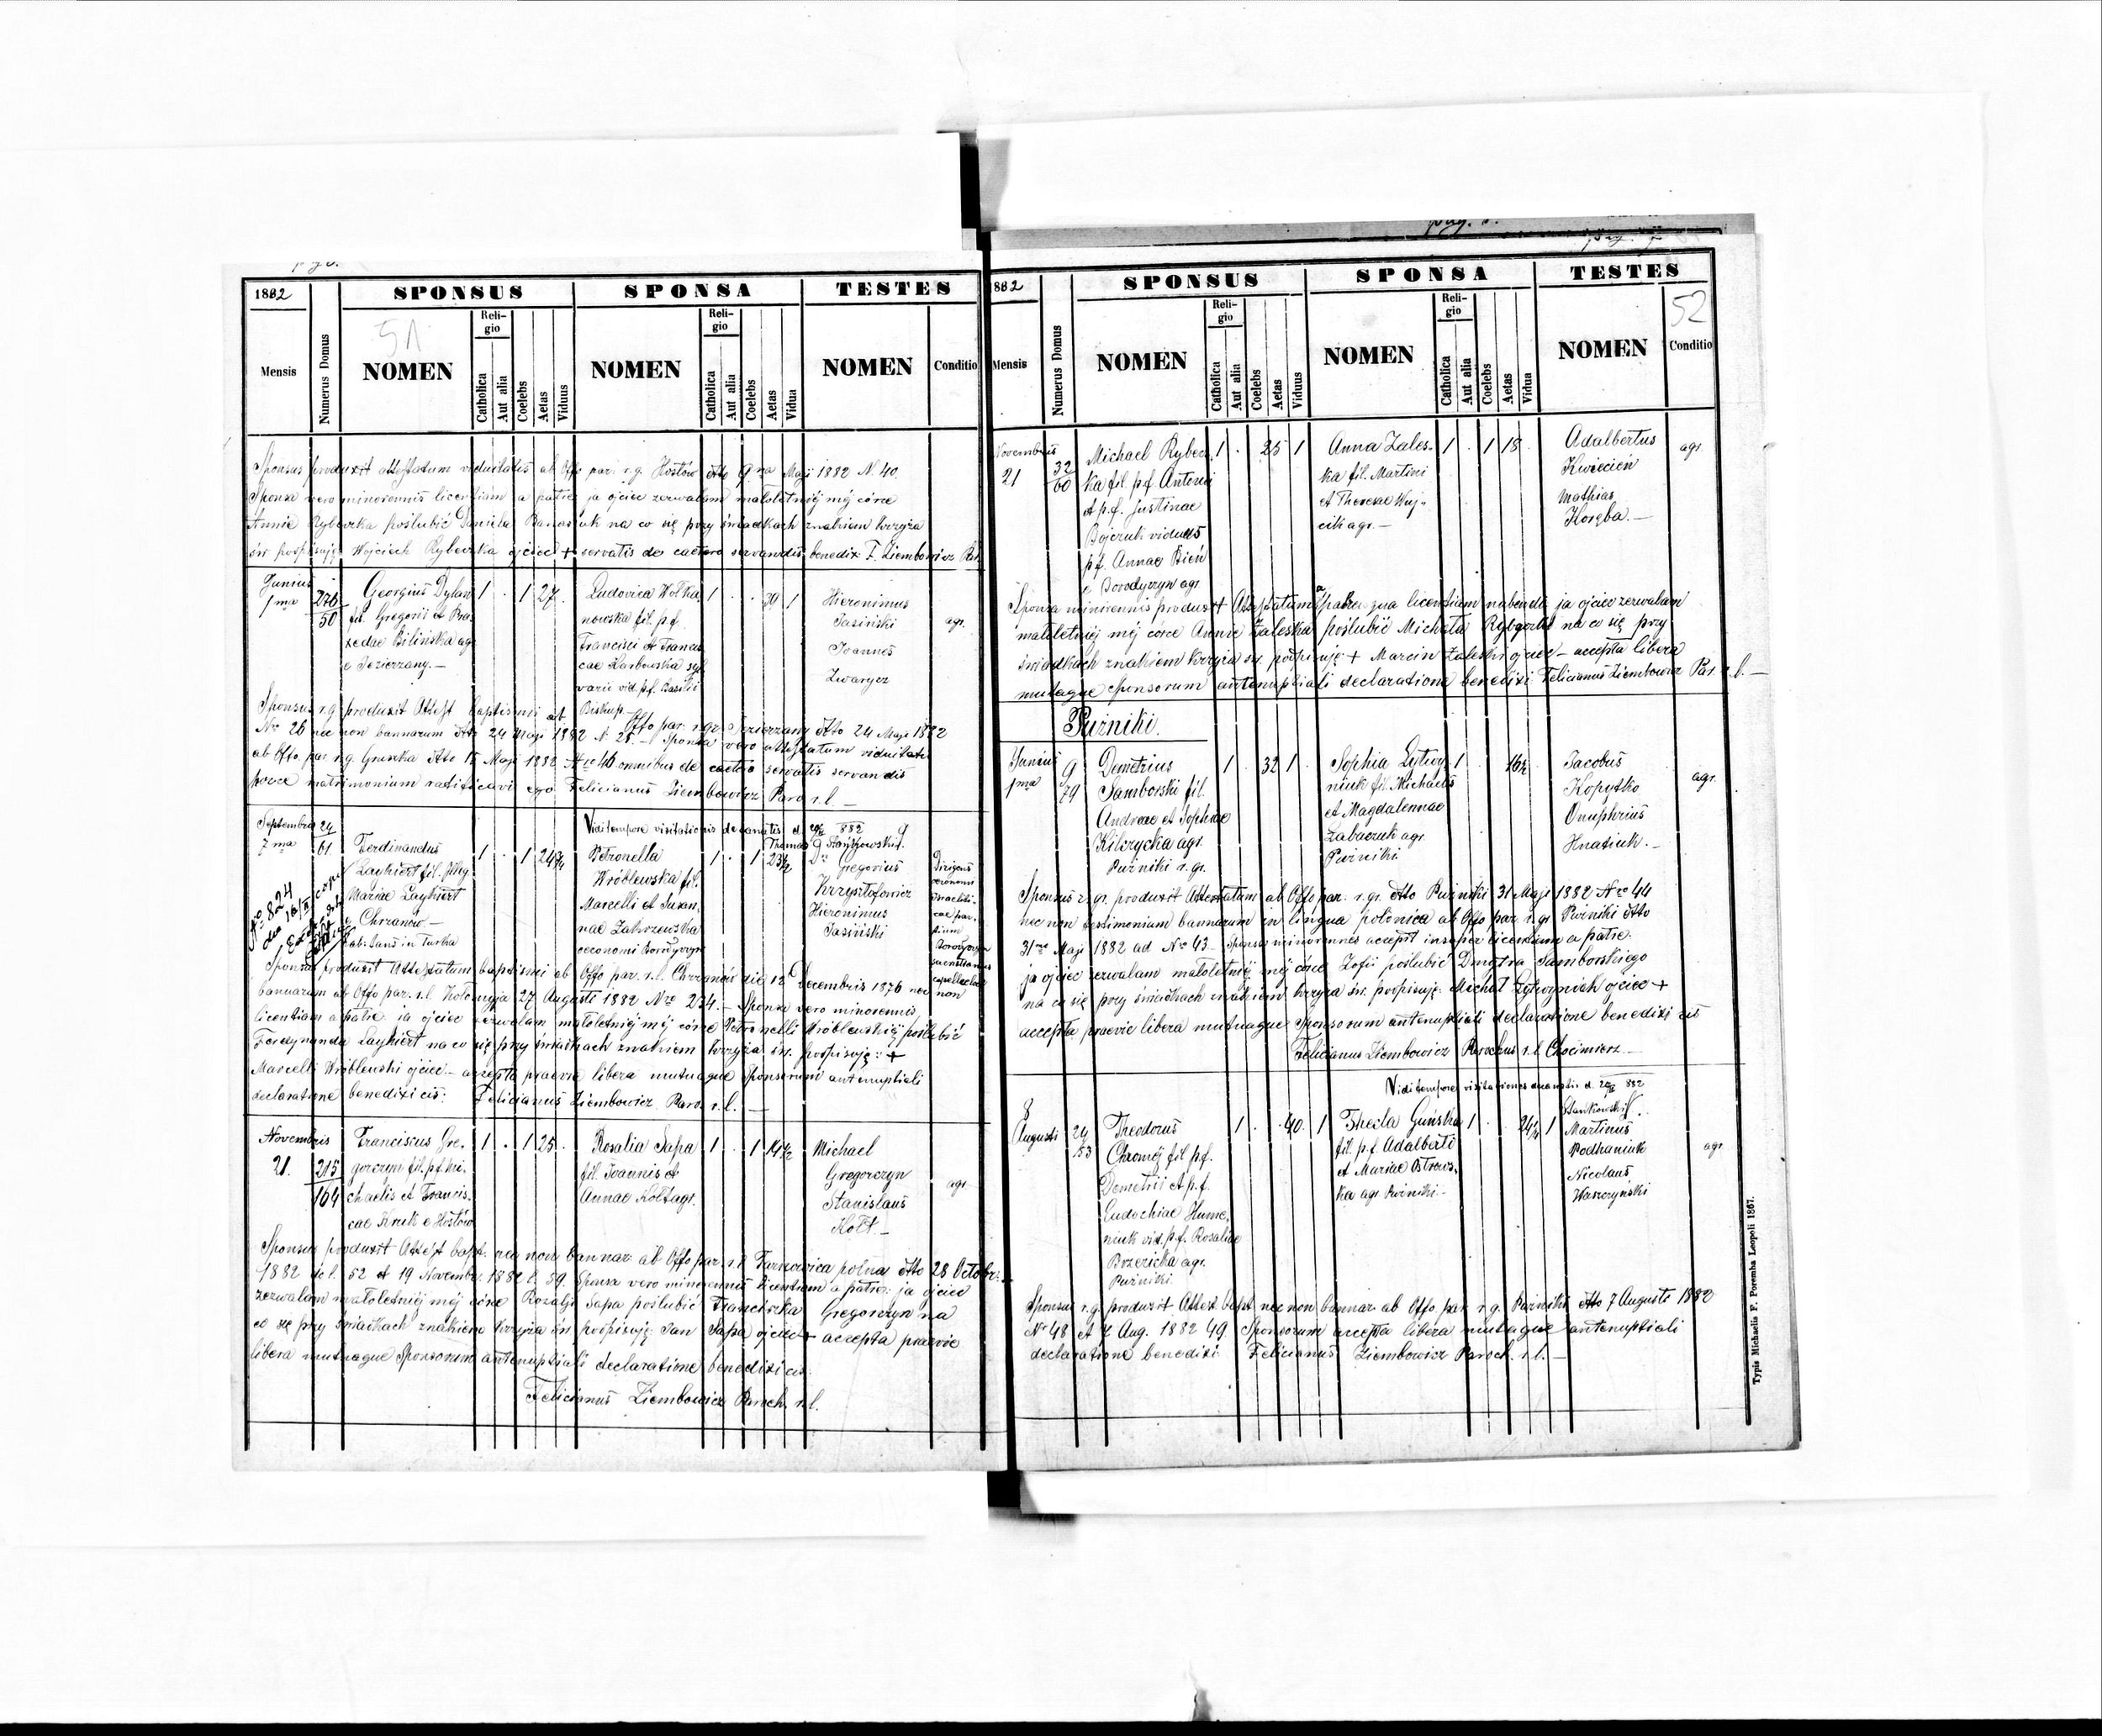 1882
SPONSUS
SPONSA
TESTES
51
Mensis
Numerus Domus
NOMEN
Religio
Catholica
Aut alia
Coelebs
Aetas
Viduus
NOMEN
Religio
Catholica
Aut alia
Coelebs
Aetas
Vidua
NOMEN
Conditio
Sponsus produxit attestatum viduitatis ab Offo par. r.g. Hostów dtto Maji 1882 N 40.
Sponsa vero minorennis licentiam a patre ja ojciec zezwalam małoletniéj méj córce
Annie Rybeczka poślubić Daniela na co się przy świadkach znakiem krzyża
św podpisuję Wojciech Rybeczka ojciec + servatis de caetero servandis benedixi F. Ziembowicz
Junius
1ma
276
50
Georgius Dylan
fil. Gregorii et Pra-
xedae Bilińska agr
e Jezierzany.—
1 . 1 27.
Ludovica Wołka
nowska fil. p.f.
Francisci et Francis
cae
vid. p.f. Basilii
Biskup
1 . . 39 1
Hieronimus
Jasiński
Joannes
Zwarycz
agr.
Sponsus r.g. produxit Attest baptismi ab Offo par. r.gr. Jezierzany dtto 24 Maji 1882
Nro 26 nec non bannarum dtto 24 Maji 1882 N 28.— Sponsa vero attestatum viduitatis
ab Offo par r.g. Gruszka dtto Maji 1882 omnibus de caetero servatis servandis
hocce matrimonium ratificavi ego Felicianus Ziembowicz Paro r.l.—
Vidi tempore visitationis decanatis d. 882
Septembris
7ma
24
61
Ferdinandus
Laykiert fil.
Mariae Laykiert
e Chrzanów—
habitans in Turka
1 . 1 24
Petronella
Wróblewska fil.
Marcelli et Susan
nae Zakrzewska
oeconomi Borodyczyn
1 . 1 23½
Dr Gregorius
Krzysztofowicz
Hieronimus
Jasiński
Sponsus produxit Attestatum baptismi ab Offo par. r.l. Chrzanów die 12 Decembris 1876 nec non
bannarum ab Offo par. r.l. Kołomyja 27 Augusti 1882 Nro 234.— Sponsa vero minorennis
licentiam a patre ja ojciec zezwalam małoletniéj méj córce Petronelli Wróblewskiéj poślubić
Ferdynanda Laykiert na co się przy świadkach znakiem krzyża św. podpisuję: +
Marcelli Wróblewski ojciec.— accepta praevie libera mutuaque Sponsorum antenuptiali
declaratione benedixi eis: Felicianus Ziembowicz Paro. r.l.—
Novembris
21.
215
164
Franciscus Gre-
gorczyn fil. p.f. Mi-
chaelis et Francis-
cae Kruk e Hostów
1 . 1 25.
Rosalia Sapa
fil. Joannis et
Annae Kołt agr.
1 . 1 19½
Michael
Gregorczyn
Stanislaus
Kołt—
agr.
Sponsus produxit Attest bapt. nec non bannar: ab Offo par. r.l. Tarnowica polna dtto 28 Octobr:
1882 52 et 19 Novembr. 1882 l. 59. Sponsa vero minorennis licentiam a patre: ja ojciec
zezwalam małoletniéj méj córce Rozalji Sapa poślubić Franciszka Gregorczyn na
co się przy świadkach znakiem krzyża św podpisuję: Jan Sapa ojciec + accepta praevie
libera mutuaque Sponsorum antenuptiali declaratione benedixi eis
Felicianus Ziembowicz Paroch. r.l.
1882
SPONSUS
SPONSA
TESTES
52
Mensis
Numerus Domus
NOMEN
Religio
Catholica
Aut alia
Coelebs
Aetas
Viduus
NOMEN
Religio
Catholica
Aut alia
Coelebs
Aetas
Vidua
NOMEN
Conditio
Novembris
21
32
60
Michael Rybecz
ka fil p.f. Antonii
et p.f. Justinae
Bojczuk viduus
p.f. Annae Bień
e Borodyczyn agr
1 . 25 1
Anna Zales-
ka fil. Martini
et Theresae Woj-
cik agr.—
1 . 1 18.
Adalbertus
Kwiecień
Mathias
Koręba.—
agr.
Sponsa minorennis produxit Attestatum a patre qua licentiam nubendi ja ojciec zezwalam
małoletniéj méj córce Annie Zaleska poślubić Michała Rybeczka na co się przy
świadkach znakiem krzyża św. podpisuję + Marcin Zaleski ojciec— accepta libera
mutaque sponsorum antenuptiali declaratione benedixi Felicianus Ziembowicz Par. r.l.—
Pużniki.
Junius
1ma
9
79
Demetrius
Samborski fil.
Andreae et Sophiae
Kilczycka agr.
Pużniki r.gr.
1 . . 32 1
Sophia Lytwy
niuk fil. Michaelis
et Magdalennae
Zabaczuk agr.
Pużniki
1 . . 16½
Jacobus
Kopytko
Onuphrius
Hnatiuk.—
agr.
Sponsus r.gr. produxit Attestatum ab Offo par. r.gr. dtto Pużniki 31 Maji 1882 Nro 44
nec non testimonium bannarum in lingua polonica ab Offo par. r.gr Pużniki dtto
31mo Maji 1882 ad Nro 43— Sponsa minorennes accepit insuper licentiam a patre.
ja ojciec zezwalam małoletniéj méj córce Zofii poślubić Dmytra Samborskiego
na co się przy świadkach znakiem krzyża św. podpisuję: Michał Lytwyniuk ojciec +
accepta praevie libera mutuaque Sponsorum antenuptiali declaratione benedixi eis
Felicianus Ziembowicz Parochus r.l. Chocimierz—
Vidi tempore visitationis decanatis d. 882
Augusti
8
29
53
Theodorus
Chroméj fil p.f.
Demetrii et p.f.
Eudochiae Hume-
niuk vid. p.f. Rosaliae
Brzezicka agr.
Pużniki.
1 . . 40. 1
Thecla Guńska
fil. p.f. Adalberti
et Mariae Ostrows-
ka agr. Pużniki.—
1 . . 24½ 1
Martinus
Podhaniuk
Nicolaus
Waszczyński
agr
Sponsus r.g. produxit Attest. bapt. nec non bannar. ab Offo. par r.g. Pużniki dtto 7 Augusti 1882
Nr 48 et 7 Aug. 1882 49. Sponsorum accepta libera mutaque antenuptiali
declaratione benedixi Felicianus Ziembowicz Paroch. r.l.—
Typis Michaelis F. Poremba Leopoli 1867.